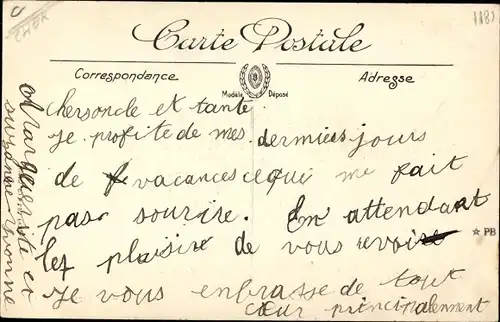 CHOR
1183
Carte Postale
Correspondance
Modèle Déposé
Adresse
chers oncle et tante.
je profite de mes derniers jours
de vacances ce qui me fait
pas sourire. En attendant
les plaisire de vous revoir
je vous enbrasse de tout
cœur principalement
Marguerite et
suzanne Yvonne
★ PB